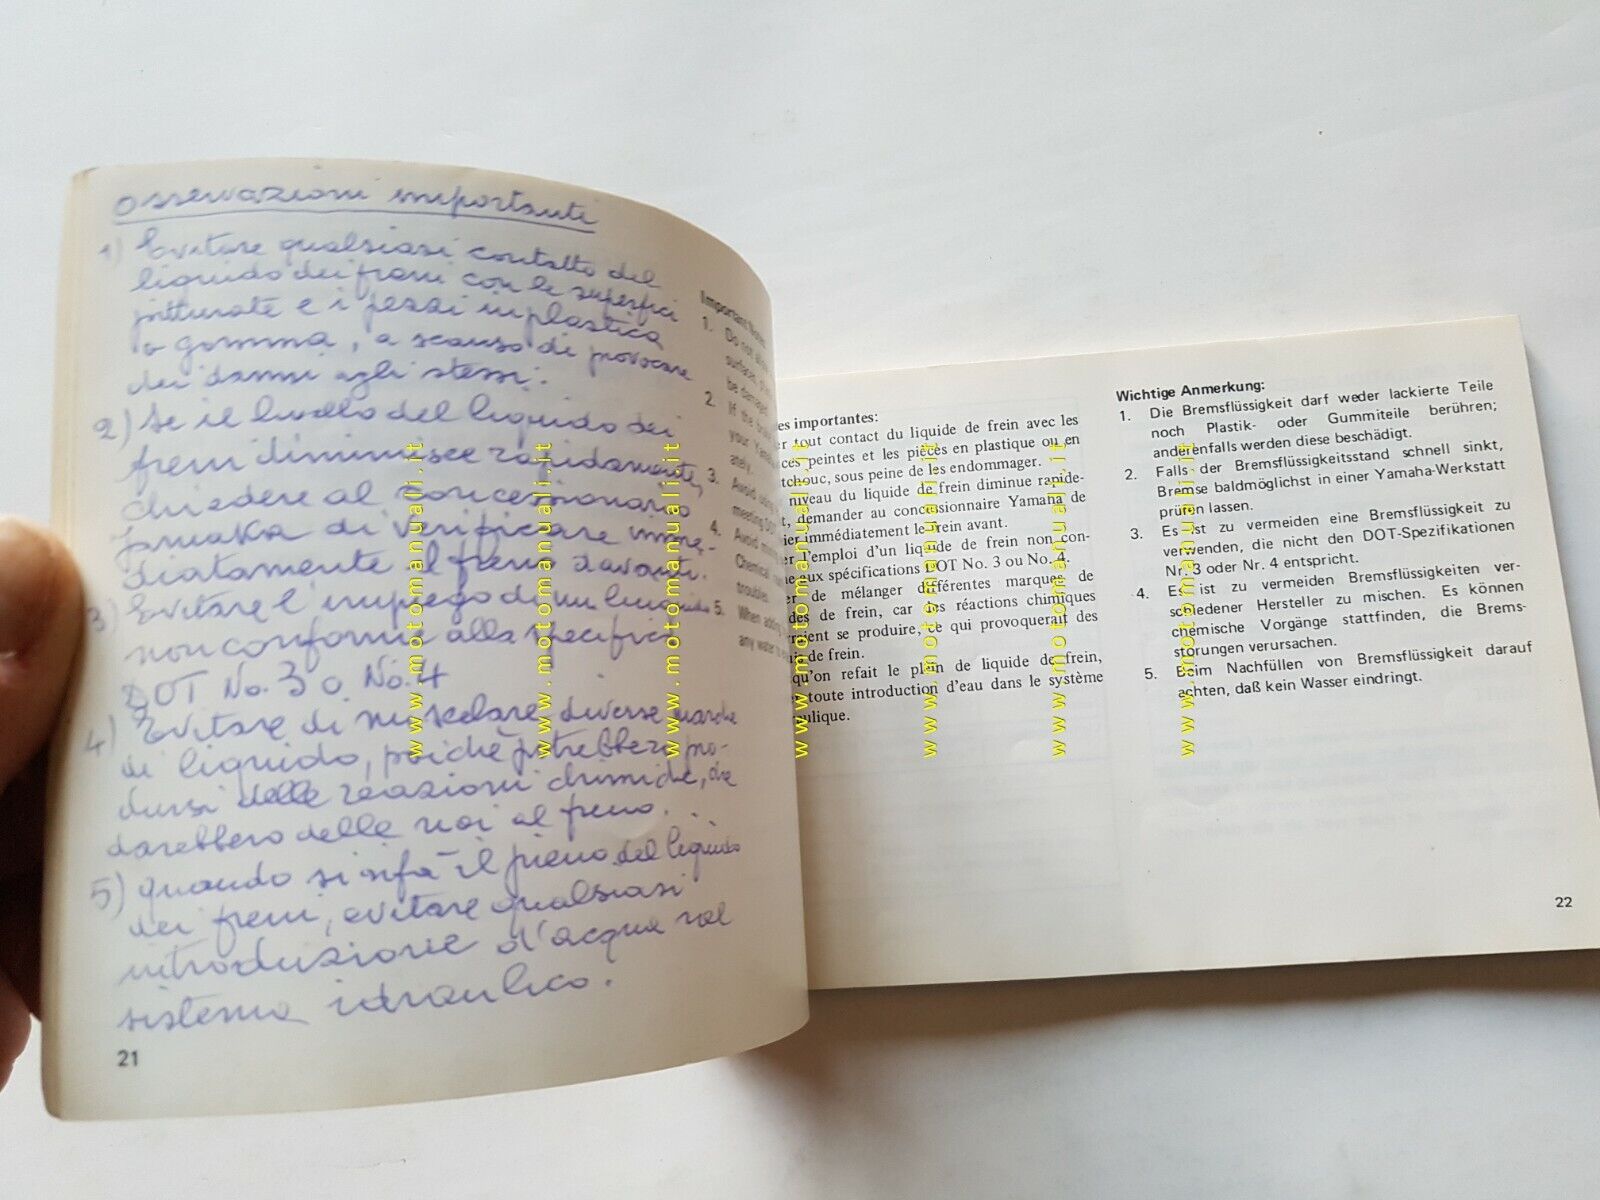 Osservazioni importanti
1) Evitare qualsiasi contatto del
liquido dei freni con le superfici
pitturate e i pezzi in plastica
o gomma, a scanso di provocare
dei danni agli stessi.
2) Se il livello del liquido dei
freni diminuisce rapidamente,
chiedere al concessionario
Yamaka di verificare imme-
diatamente il freno davanti.
3) Evitare l'impiego di un liquido
non conforme alla specifica
DOT No. 3 o No. 4
4) Evitare di mescolare diverse marche
di liquido, poiché potrebbero pro-
dursi delle reazioni chimiche, che
darebbero delle noi al freno...
5) quando si rifà il pieno del liquido
dei freni, evitare qualsiasi
introduzione d'acqua nel
sistema idraulico.
21
Important Notes:
1. Do not
surfaces,
be damaged
2. If the
your Yamaha
ately.
3. Avoid using
meeting
4. Avoid
Chemical
troubles.
5. When adding
any water
es importantes:
er tout contact du liquide de frein avec les
ces peintes et les pièces en plastique ou en
tchouc, sous peine de les endommager.
niveau du liquide de frein diminue rapide-
t, demander au concessionnaire Yamaha de
ier immédiatement le frein avant.
er l'emploi d'un liquide de frein non con-
ne aux spécifications DOT No. 3 ou No. 4.
er de mélanger différentes marques de
des de frein, car des réactions chimiques
rraient se produire, ce qui provoquerait des
is de frein.
qu'on refait le plein de liquide de frein,
r toute introduction d'eau dans le système
ulique.
Wichtige Anmerkung:
1. Die Bremsflüssigkeit darf weder lackierte Teile
noch Plastik- oder Gummiteile berühren;
anderenfalls werden diese beschädigt.
2. Falls der Bremsflüssigkeitsstand schnell sinkt,
Bremse baldmöglichst in einer Yamaha-Werkstatt
prüfen lassen.
3. Es ist zu vermeiden eine Bremsflüssigkeit zu
verwenden, die nicht den DOT-Spezifikationen
Nr. 3 oder Nr. 4 entspricht.
4. Es ist zu vermeiden Bremsflüssigkeiten ver-
schiedener Hersteller zu mischen. Es können
chemische Vorgänge stattfinden, die Brems-
störungen verursachen.
5. Beim Nachfüllen von Bremsflüssigkeit darauf
achten, daß kein Wasser eindringt.
22
www.motomanuali.it
www.motomanuali.it
www.motomanuali.it
www.motomanuali.it
www.motomanuali.it
www.motomanuali.it
www.motomanuali.it